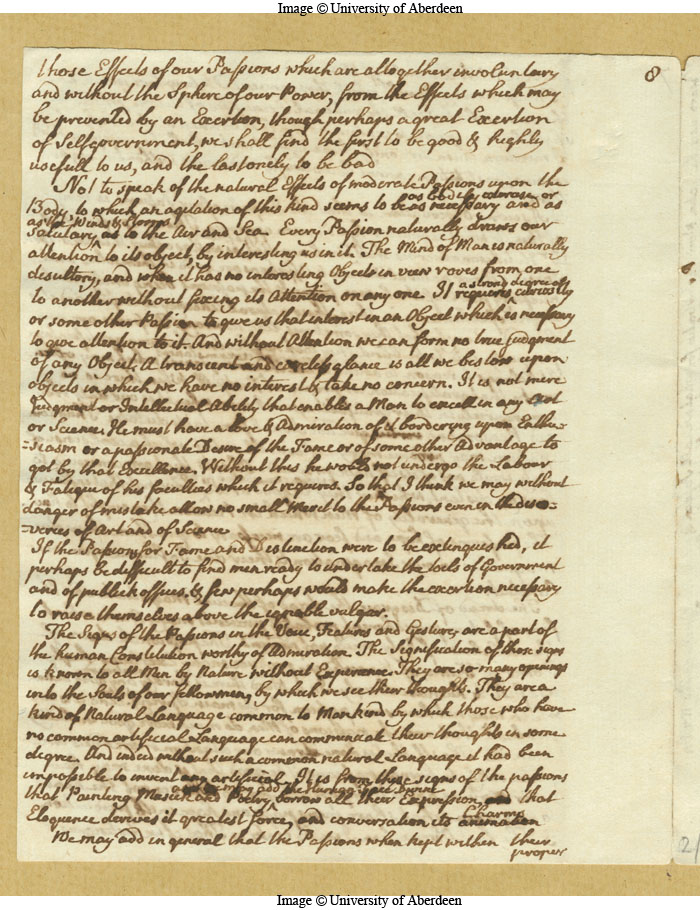 Image © University of Aberdeen
8
those Effects of our Passions which are altogether involuntary
and without the Sphere of our Power, from the Effects which may
be prevented by an Exertion, though perhaps a great Exertion
of Selfgovernment, we shall find the first to be good & highly
usefull to us, and the last onely to be bad
Not to speak of the natural Effects of moderate Passions upon the
as bodily exercise or
Body, to which an agitation of this kind seems to be as necessary and as
as the Winds & Storms
salutary, as to the Air and Sea. Every Passion naturally draws our
attention to its object, by interesting us in it. The Mind of Man is naturally
desultory, and when it has no interesting Objects in view roves from one
a strong degree of
to another without fixing its Attention on any one. It requires curiosity
or some other Passion to give us that interest in an Object which is necessary
to give attention to it. And without Attention we can form no true judgment
of any Object. A transient and careless glance is all we bestow upon
objects in which we have no interest & take no concern. It is not mere
Judgment or Intellectual Ability that enables a Man to excell in any Art
or Science. He must have a love & Admiration of it bordering upon Enthu
=siasm or a passionate Desire of the Fame or of some other Advantage to
got by that Excellence. Without this he would not undergo the Labour
& Fatigue of his faculties which it requires. So that I think we may without
danger of mistake allow no small Merit to the Passions even in the disco=
=veries of Art and of Science
If the Passions for Fame and Distinction were to be extinguished, it
perhaps be difficult to find men ready to undertake the toils of Government
and of publick offices, & few perhaps would make the exertion necessary
to raise themselves above the ignoble vulgar.
The Signs of the Passions in the Voice, Features and Gesture, are a part of
the human Constitution worthy of Admiration. The Signification of those signs
is known to all Men by Nature without Experience. They are so many openings
into the Souls of our fellowmen, by which we see their thoughts. They are a
kind of Natural Language common to Mankind by which those who have
no common artificial Language can communicate their thoughts in some
degree. And indeed without such a common natural Language it had been
impossible to invent any artificial. It is from these signs of the passions
and we may add the Human Face Divine
that Painting Musick and Poetry borrow all their Expression, and that
Charms
Eloquence derives it greatest force, and conversation its animation
We may add in general that the Passions when kept within their
proper
Image © University of Aberdeen